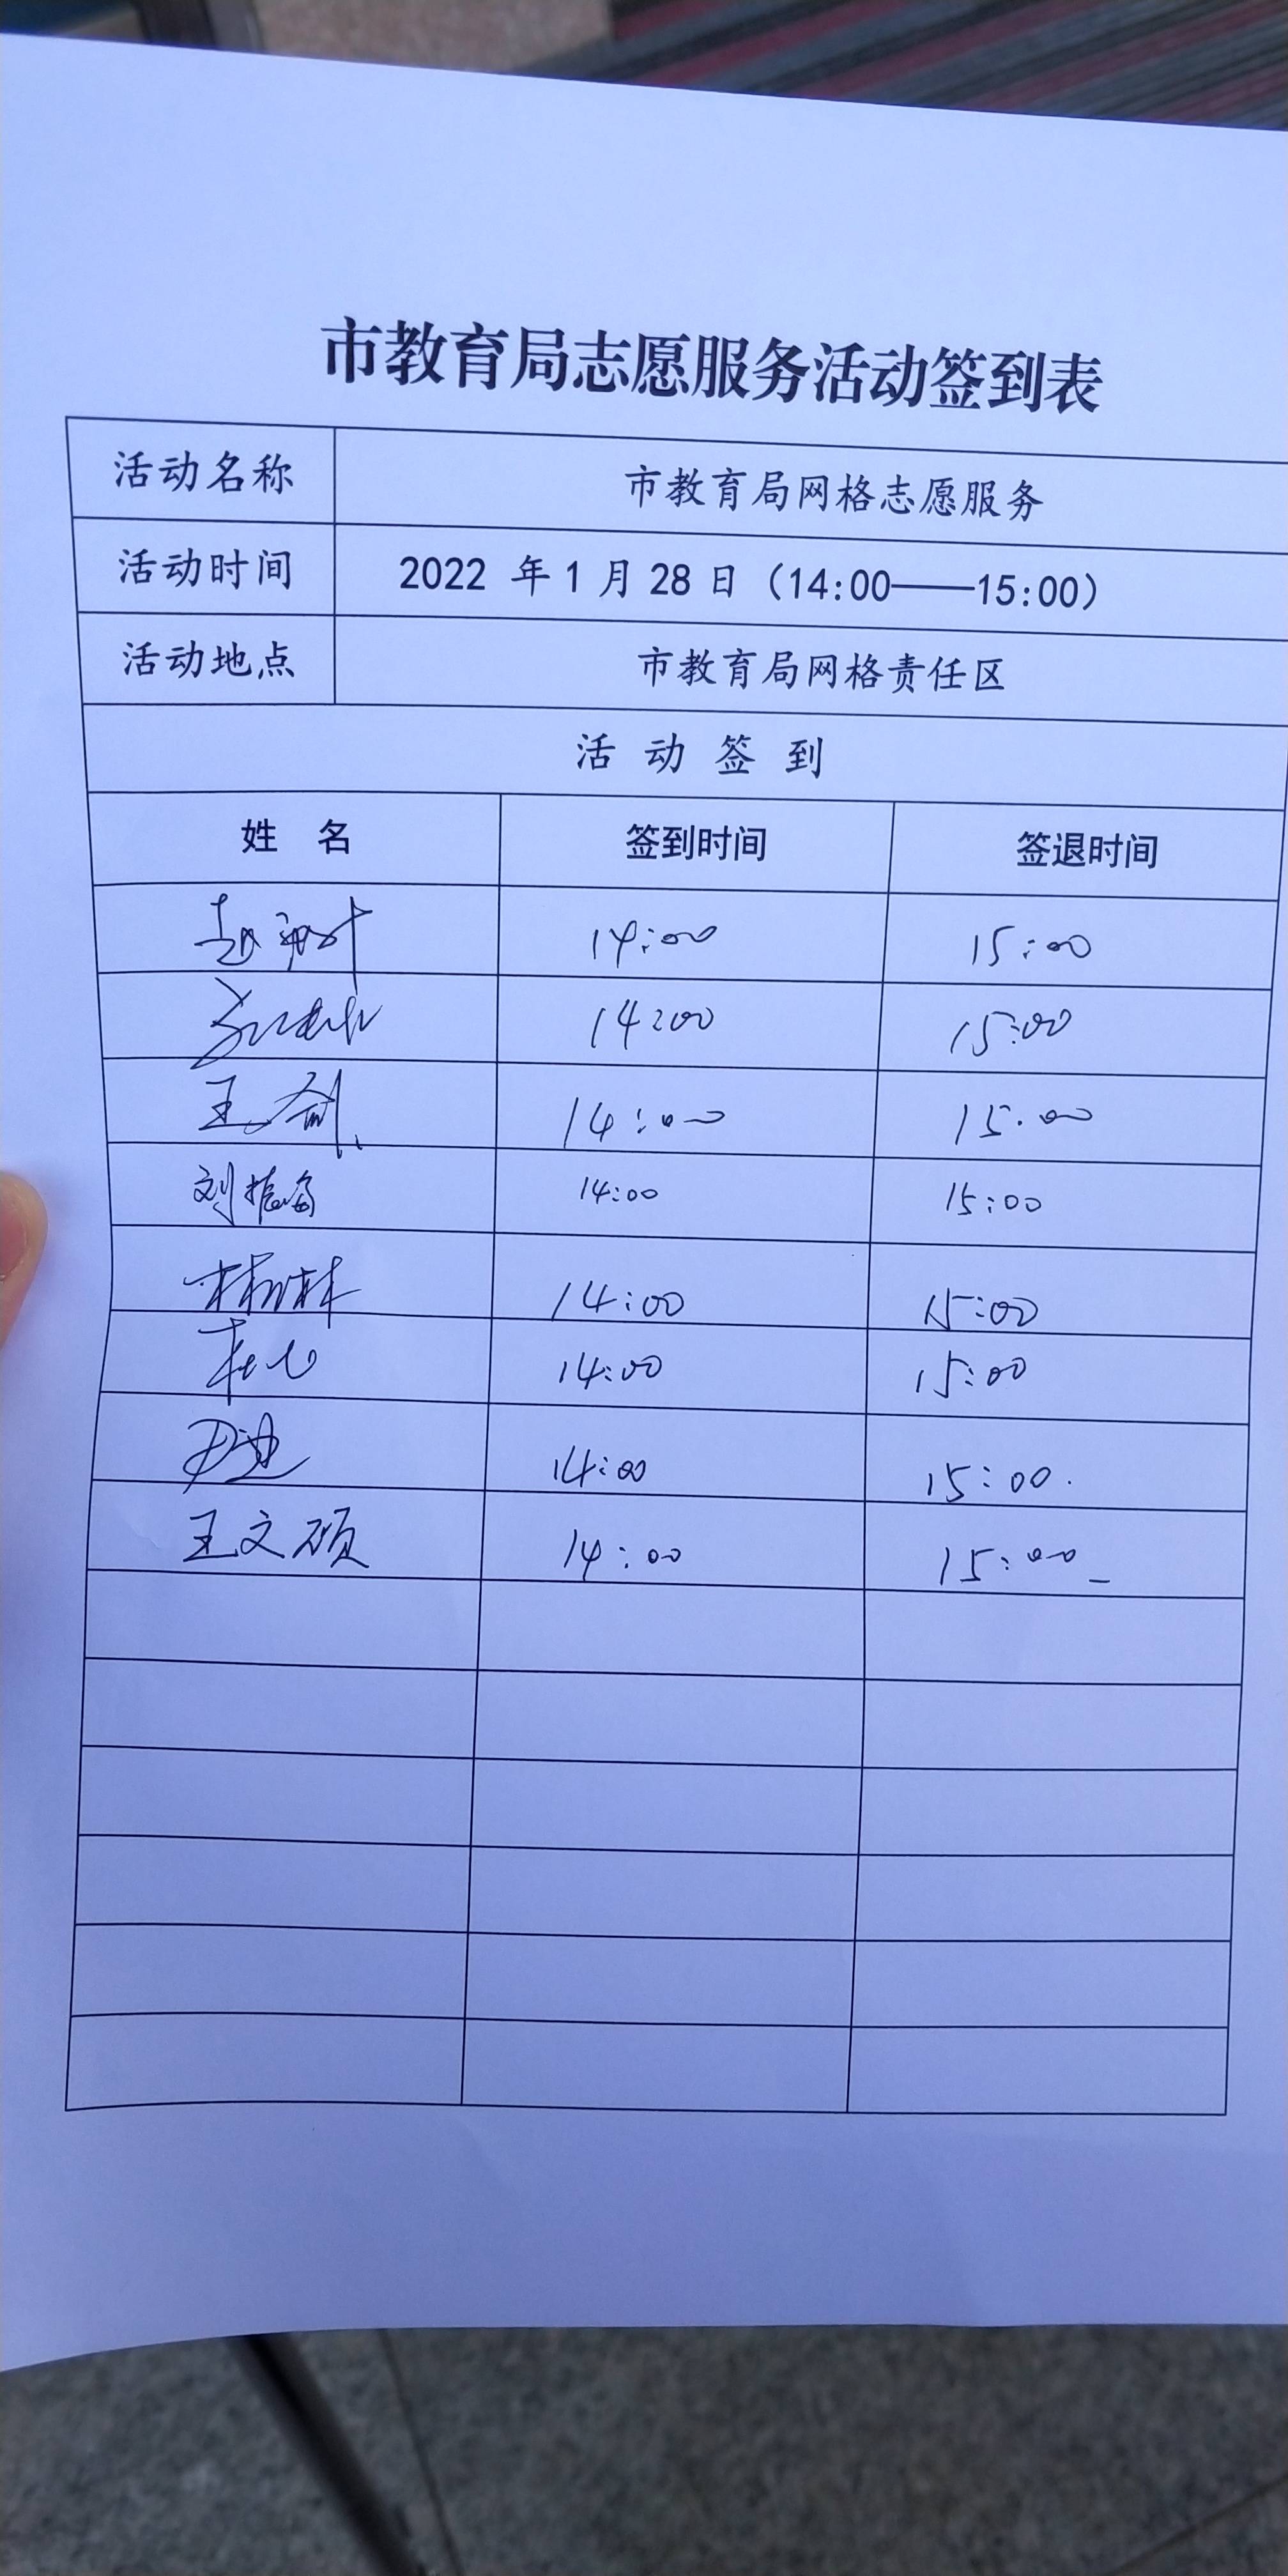 市教育局志愿服务活动签到表
活动名称 市教育局网格志愿服务
活动时间 2022 年 1 月 28 日（14:00——15:00）
活动地点 市教育局网格责任区
活 动 签 到
姓 名 签到时间 签退时间
14:00 15:00
14:00 15:00
王 14:00 15:00
刘 14:00 15:00
14:00 15:00
14:00 15:00
14:00 15:00.
王文硕 14:00 15:00